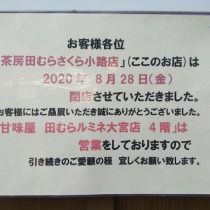 お客様各位
「茶房田むらさくら小路店」(ここのお店)は
2020年8月28日(金)
閉店させていただきました。
お客様にはご贔屓いただき誠にありがとうございました。
「甘味屋 田むらルミネ大宮店 4階」は
営業をしておりますので
引き続きのご愛顧の程 宜しくお願い致します。